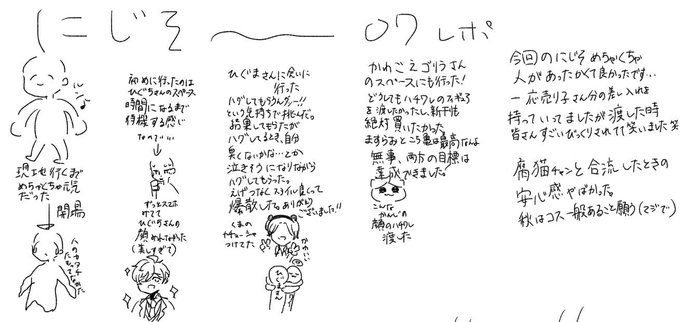 にじそ〜07レポ
ルン♪
現地行くまで
めちゃくちゃ元気
だった
開場
人のカタチ
たもってなかった
初めに行ったのは
ひぐちさんのスペース
時間になるまで
待機する感じ
なので…
ずっとスマホ
みてて
ひぐちさんの
顔みれなかった
(美しすぎて)
ひぐまさんに会いに
行った
ハグしてもらうんダー!!
という気持ちで挑んだ。
結果してもらたが
ハグしてるとき、自分
臭くないかな…とか
泣きそうになりながら
ハグしてもらった
えげつなくスタイル良くって
爆散した。ありがとう
ございました!!
くまの
カチューシャ
つけてた
かわいい
ひぐまさん
かわごえゴリラさん
のスペースにも行った!
どうしてもハチワレのスギョラ
を渡したかったし、新刊も
絶対買いたかった。
ますらおところ亀は最高なんよ
無事、両方の目標は
達成できました。
こんな
かんじの
顔のハチワレ
渡した
今回のにじそめちゃくちゃ
人があったかくて良かったです…
一応売り子さん分の差し入れを
持っていってましたが渡した時
皆さんすごいびっくりされてて笑いました笑
腐猫チャンと合流したときの
安心感やばかった。
秋はコス一般あること願う(マジで)